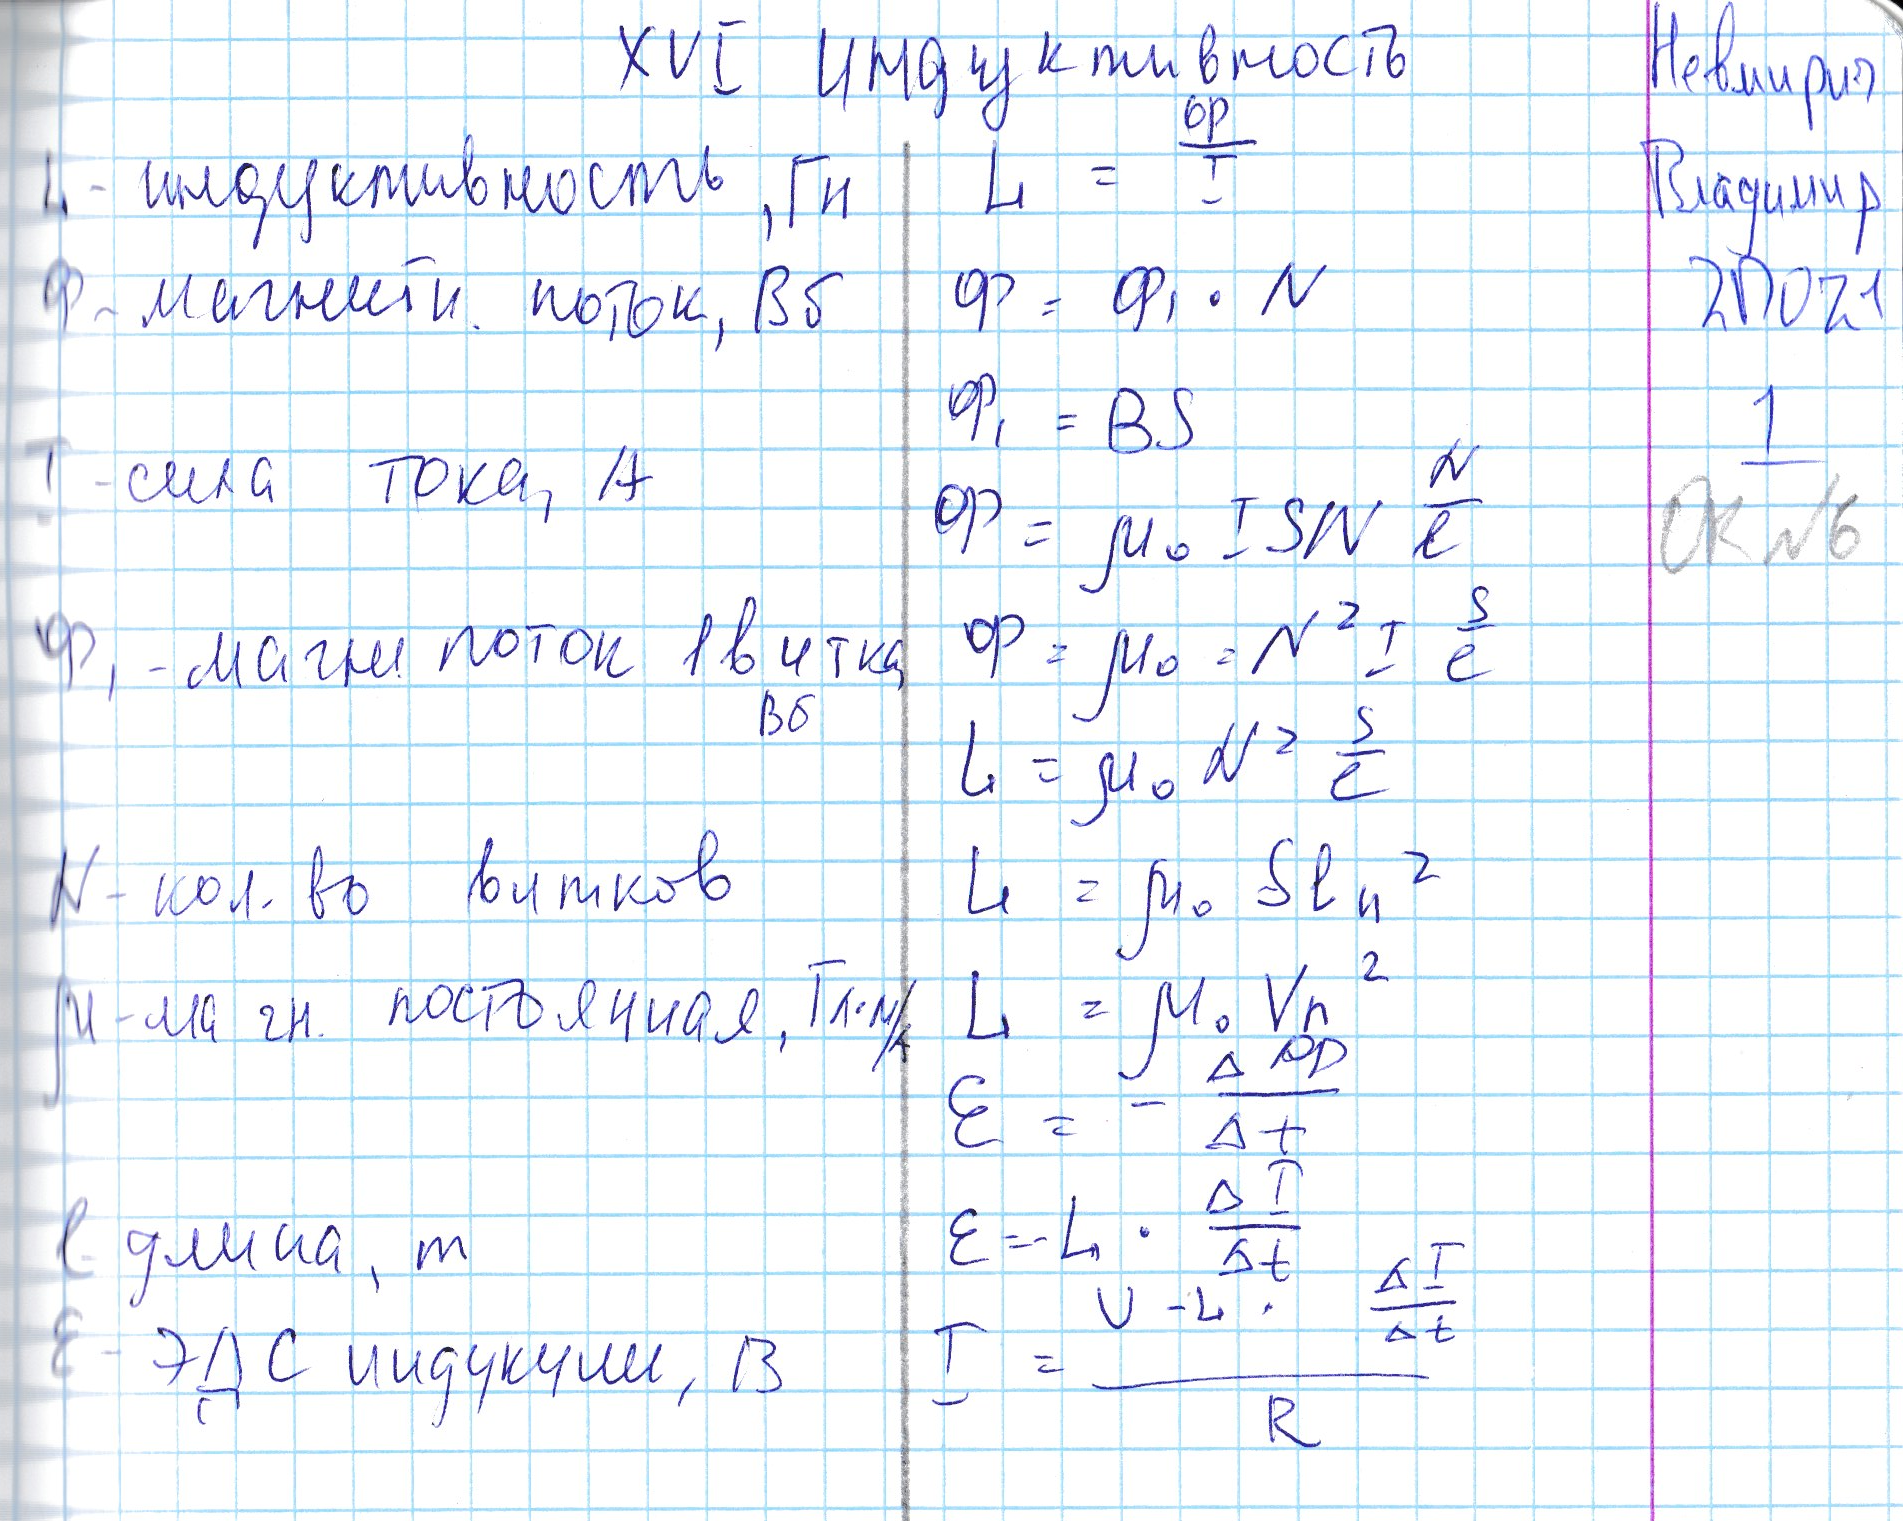 XVI Индуктивность
L - индуктивность, Гн
Ф - магнитн. поток, Вб
I - сила тока, А
Ф₁ - магн. поток 1 витка,
Вб
N - кол-во витков
μ - магн. постоянная, Тл·м/А
l - длина, m
ε - ЭДС индукции, В
L = Ф/I
Ф = Ф₁ · N
Ф₁ = BS
Ф = μ₀ I S N N/l
Ф = μ₀ = N² I S/l
L = μ₀ N² S/l
L = μ₀ S l n²
L = μ₀ V n²
ε = - ΔФ/Δt
ε = -L · ΔI/Δt
I = (U - L · ΔI/Δt)/R
Владимир
1
OK №6